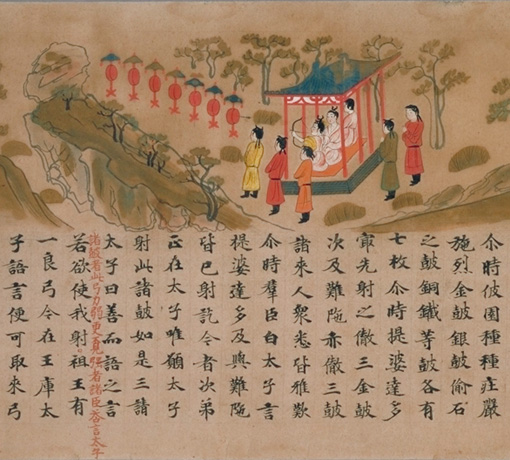 尒時彼園種種莊嚴
施烈金鼓銀鼓偷石
之鼓銅鐵等鼓各有
七枚尒時提婆達多
冣先射之徹三金鼓
次及難陁亦徹三鼓
諸來人衆悉皆雅歎
尒時羣臣白太子言
提婆達多及與難陁
皆已射訖今者次第
正在太子唯願太子
射此諸鼓如是三請
太子曰善而語之言
諸鼓者此弓力弱更覓强者諸臣荅言太子
若欲使我射祖王有
一良弓今在王庫太
子語言便可取来弓